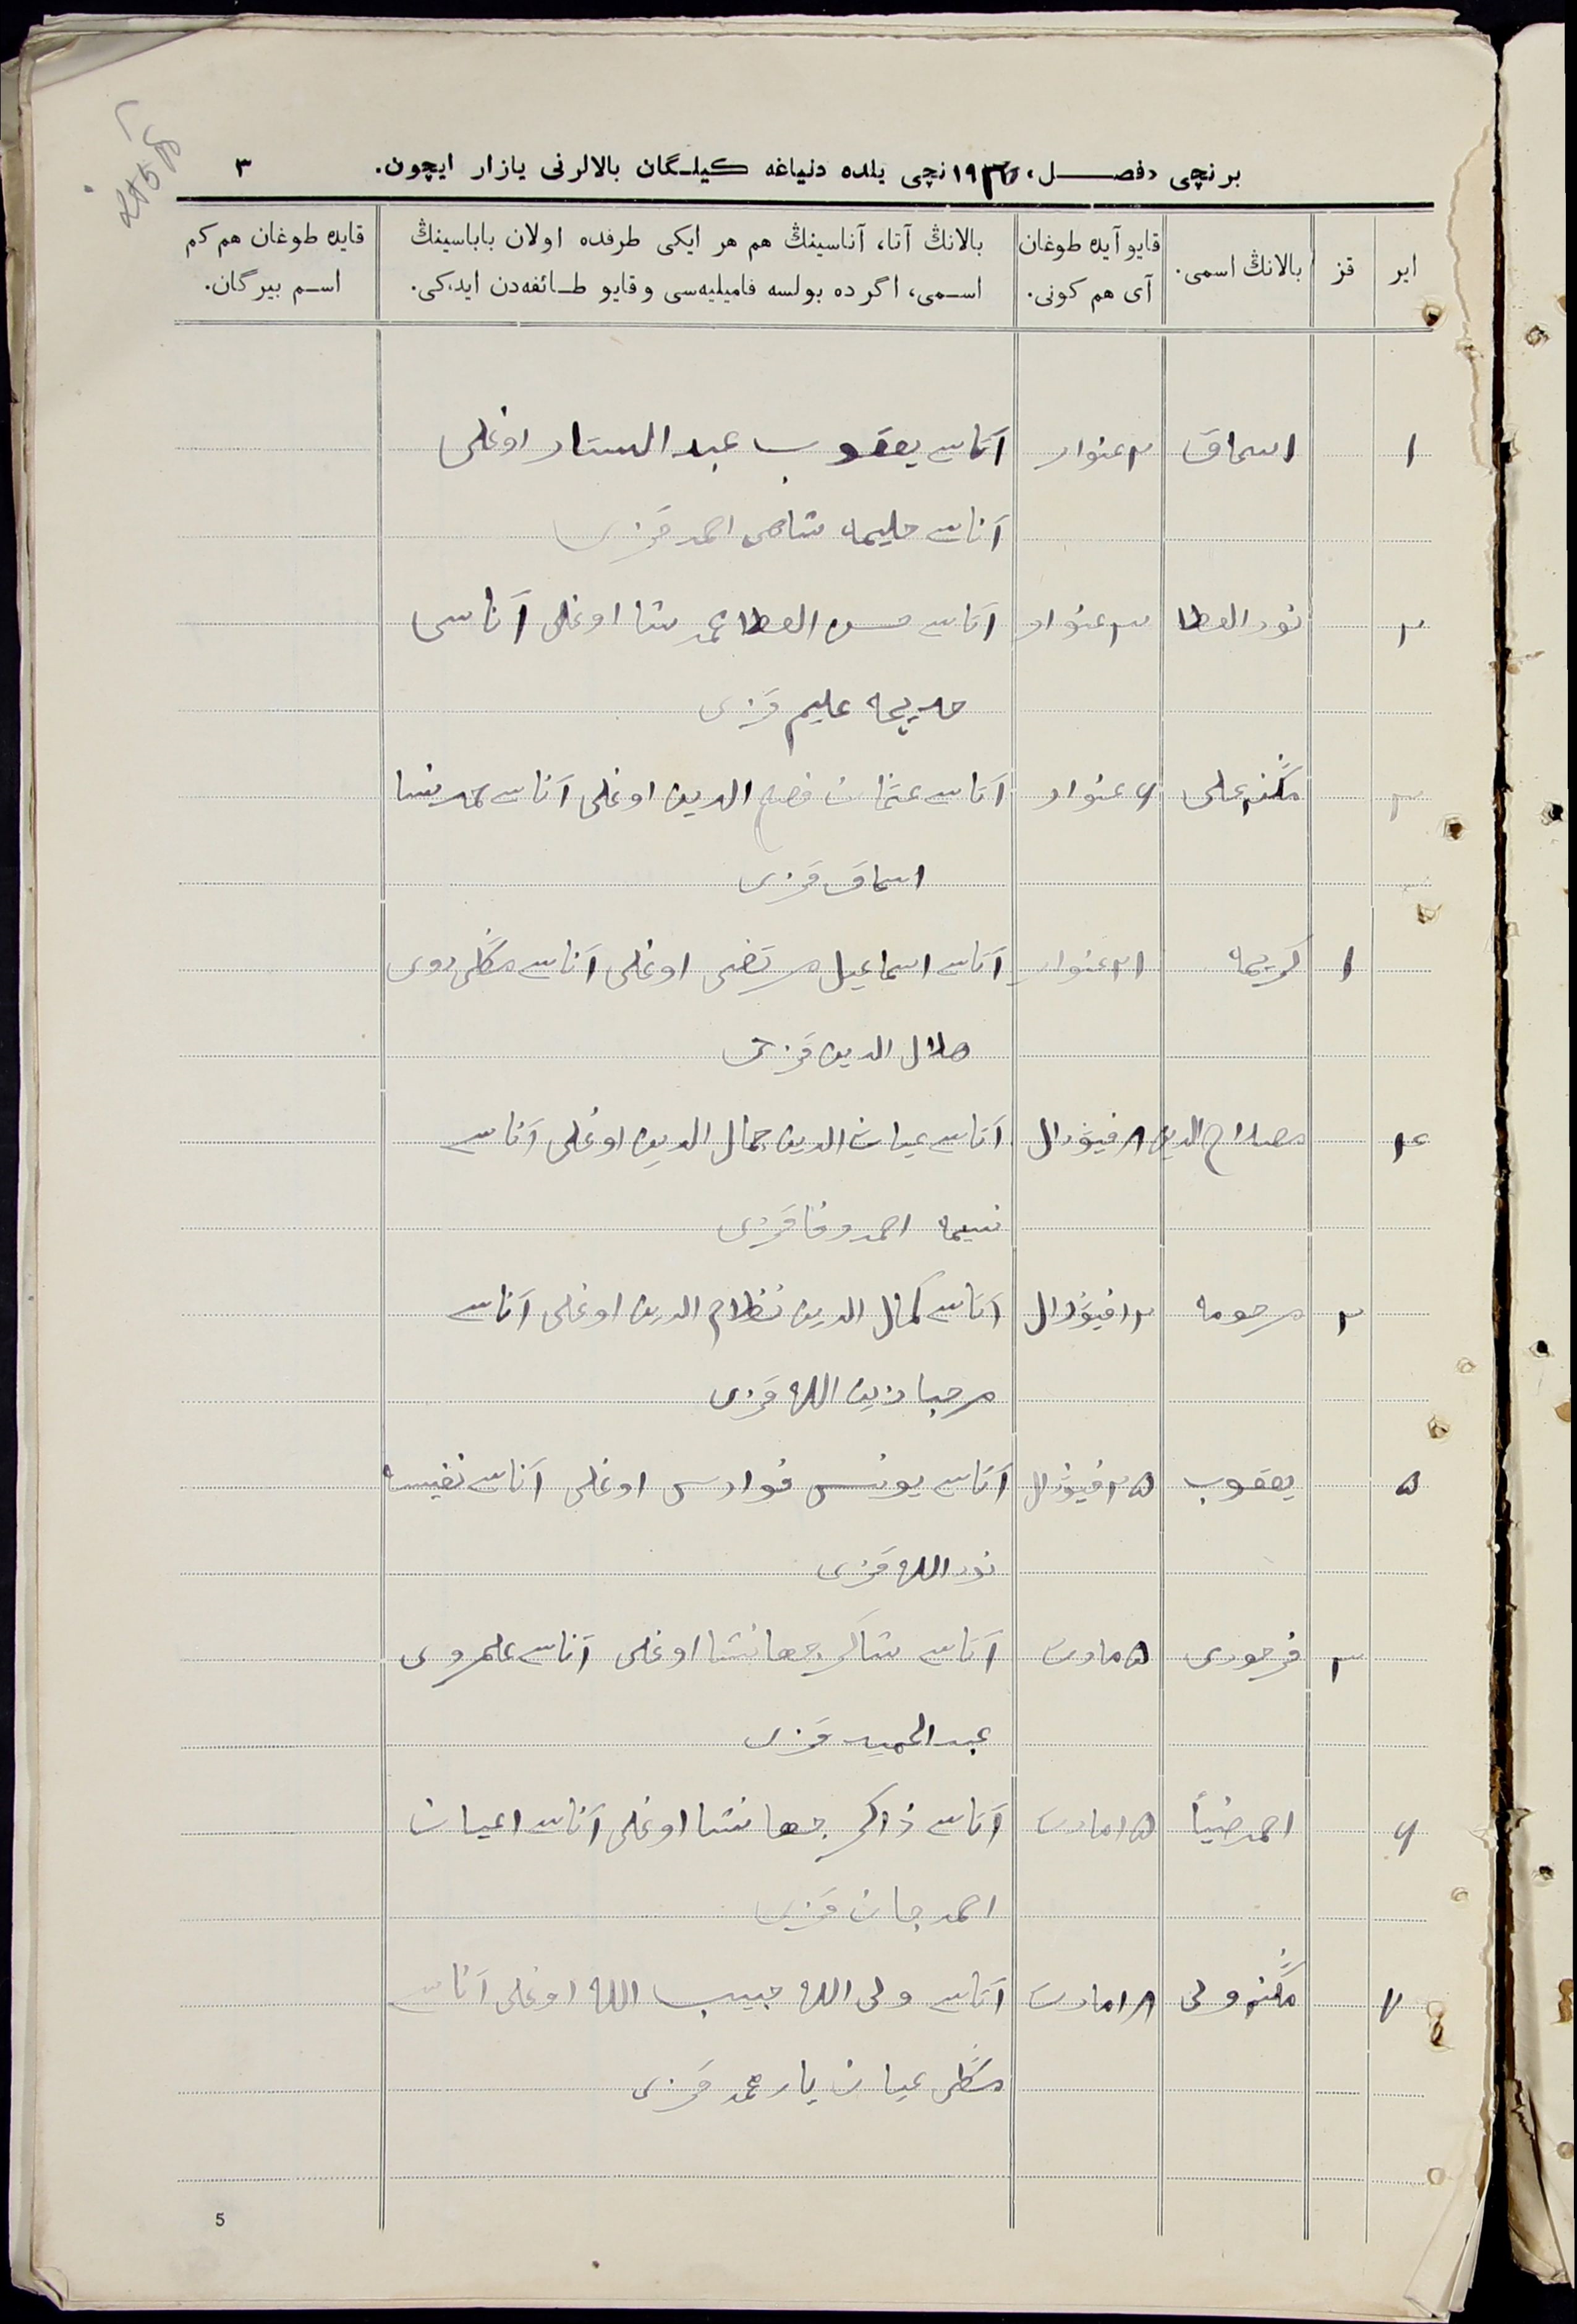 برنچی «فصل»، ۱۹۳۶ نچی یلده دنیاغه کیلـگان بالالرنی یازار ایچون.
۳
ایر
قز
بالانڭ اسمی.
قایو آیده طوغان
آی هم کونی.
بالانڭ آتا، آناسینڭ هم هر ایکی طرفده اولان باباسینڭ
اسـمی، اگر ده بولسه فامیلیه‌سی و قایو طـائفه‌دن ایدکی.
قایده طوغان هم کم
اسـم بیرگان.
۱ اسحاق ۲ غنوار آتاسی یعقوب عبد الستار اوغلی
آناسی حلیمه شاهی احمد قزی
۲ نور العطا ۳ غنوار آتاسی حسن العطا محمدشا اوغلی آناسی
خدیجه علیم قزی
۳ مڭنعلی ۶ غنوار آتاسی عثمان فصیح الدین اوغلی آناسی
اسحاق قزی
۱ کریمه ۲۱ غنوار آتاسی اسماعیل مرتضی اوغلی آناسی
هلال الدین قزی
۴ مصلاح الدین ۸ فیورال آتاسی عیان الدین جمال الدین اوغلی آناسی
نسیمه احمد وفا قزی
۲ مرحومه ۱۲ فیورال آتاسی کمال الدین نظام الدین اوغلی آناسی
مرحبا زین الله قزی
۵ یعقوب ۲۵ فیورال آتاسی یونس اوغلی آناسی نفیسه
نور الله قزی
۳ ۵ مارت آتاسی شاکر جهانشا اوغلی آناسی
عبد الحمید قزی
۶ احمد ضیا ۱۵ مارت آتاسی ذاکر جهانشا اوغلی آناسی
احمد جان قزی
۷ مڭنولی ۱۸ مارت آتاسی ولی الله حبیب الله اوغلی آناسی
یار محمد قزی
5